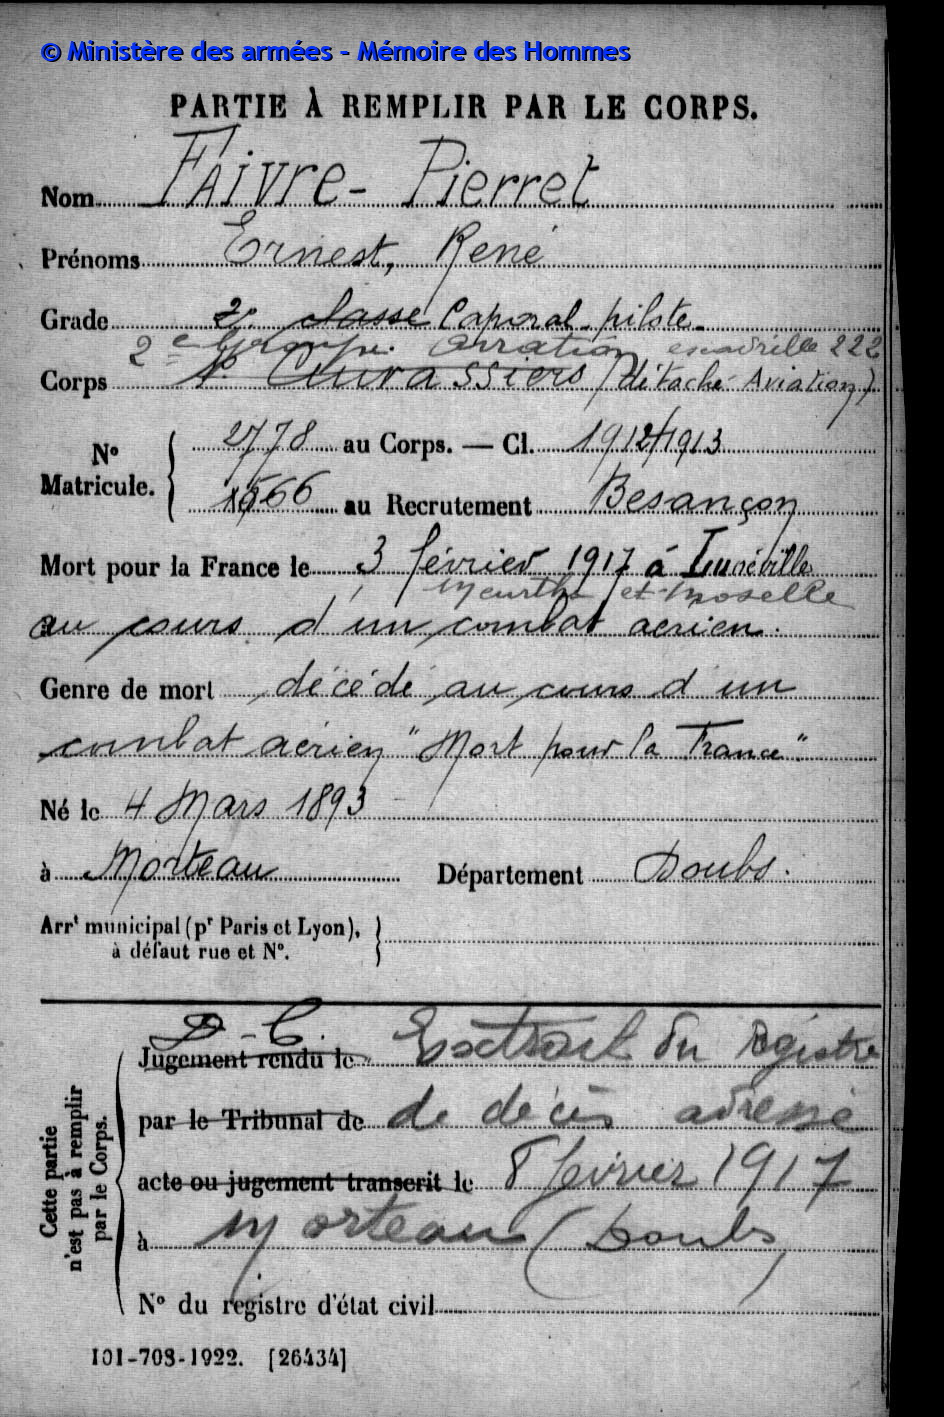 © Ministère des armées - Mémoire des Hommes
PARTIE À REMPLIR PAR LE CORPS.
Nom Faivre-Pierret
Prénoms Ernest, René
Grade 2e classe Caporal-pilote
2e Groupe Aviation escadrille 222
Corps Cuirassiers (détaché Aviation)
N° Matricule.
2778 au Corps. — Cl. 1912/1913
1566 au Recrutement Besançon
Mort pour la France le 3 février 1917 à Lunéville
Meurthe et Moselle
au cours d'un combat aérien.
Genre de mort décédé au cours d'un
combat aérien "Mort pour la France"
Né le 4 Mars 1893
à Morteau Département Doubs.
Arrt municipal (pr Paris et Lyon),
à défaut rue et N°.
Cette partie n'est pas à remplir par le Corps.
D-C. Extrait du Registre
Jugement rendu le
par le Tribunal de de décès adressé
acte ou jugement transcrit le 8 février 1917
à Morteau (Doubs)
N° du registre d'état civil
101-708-1922. [26434]